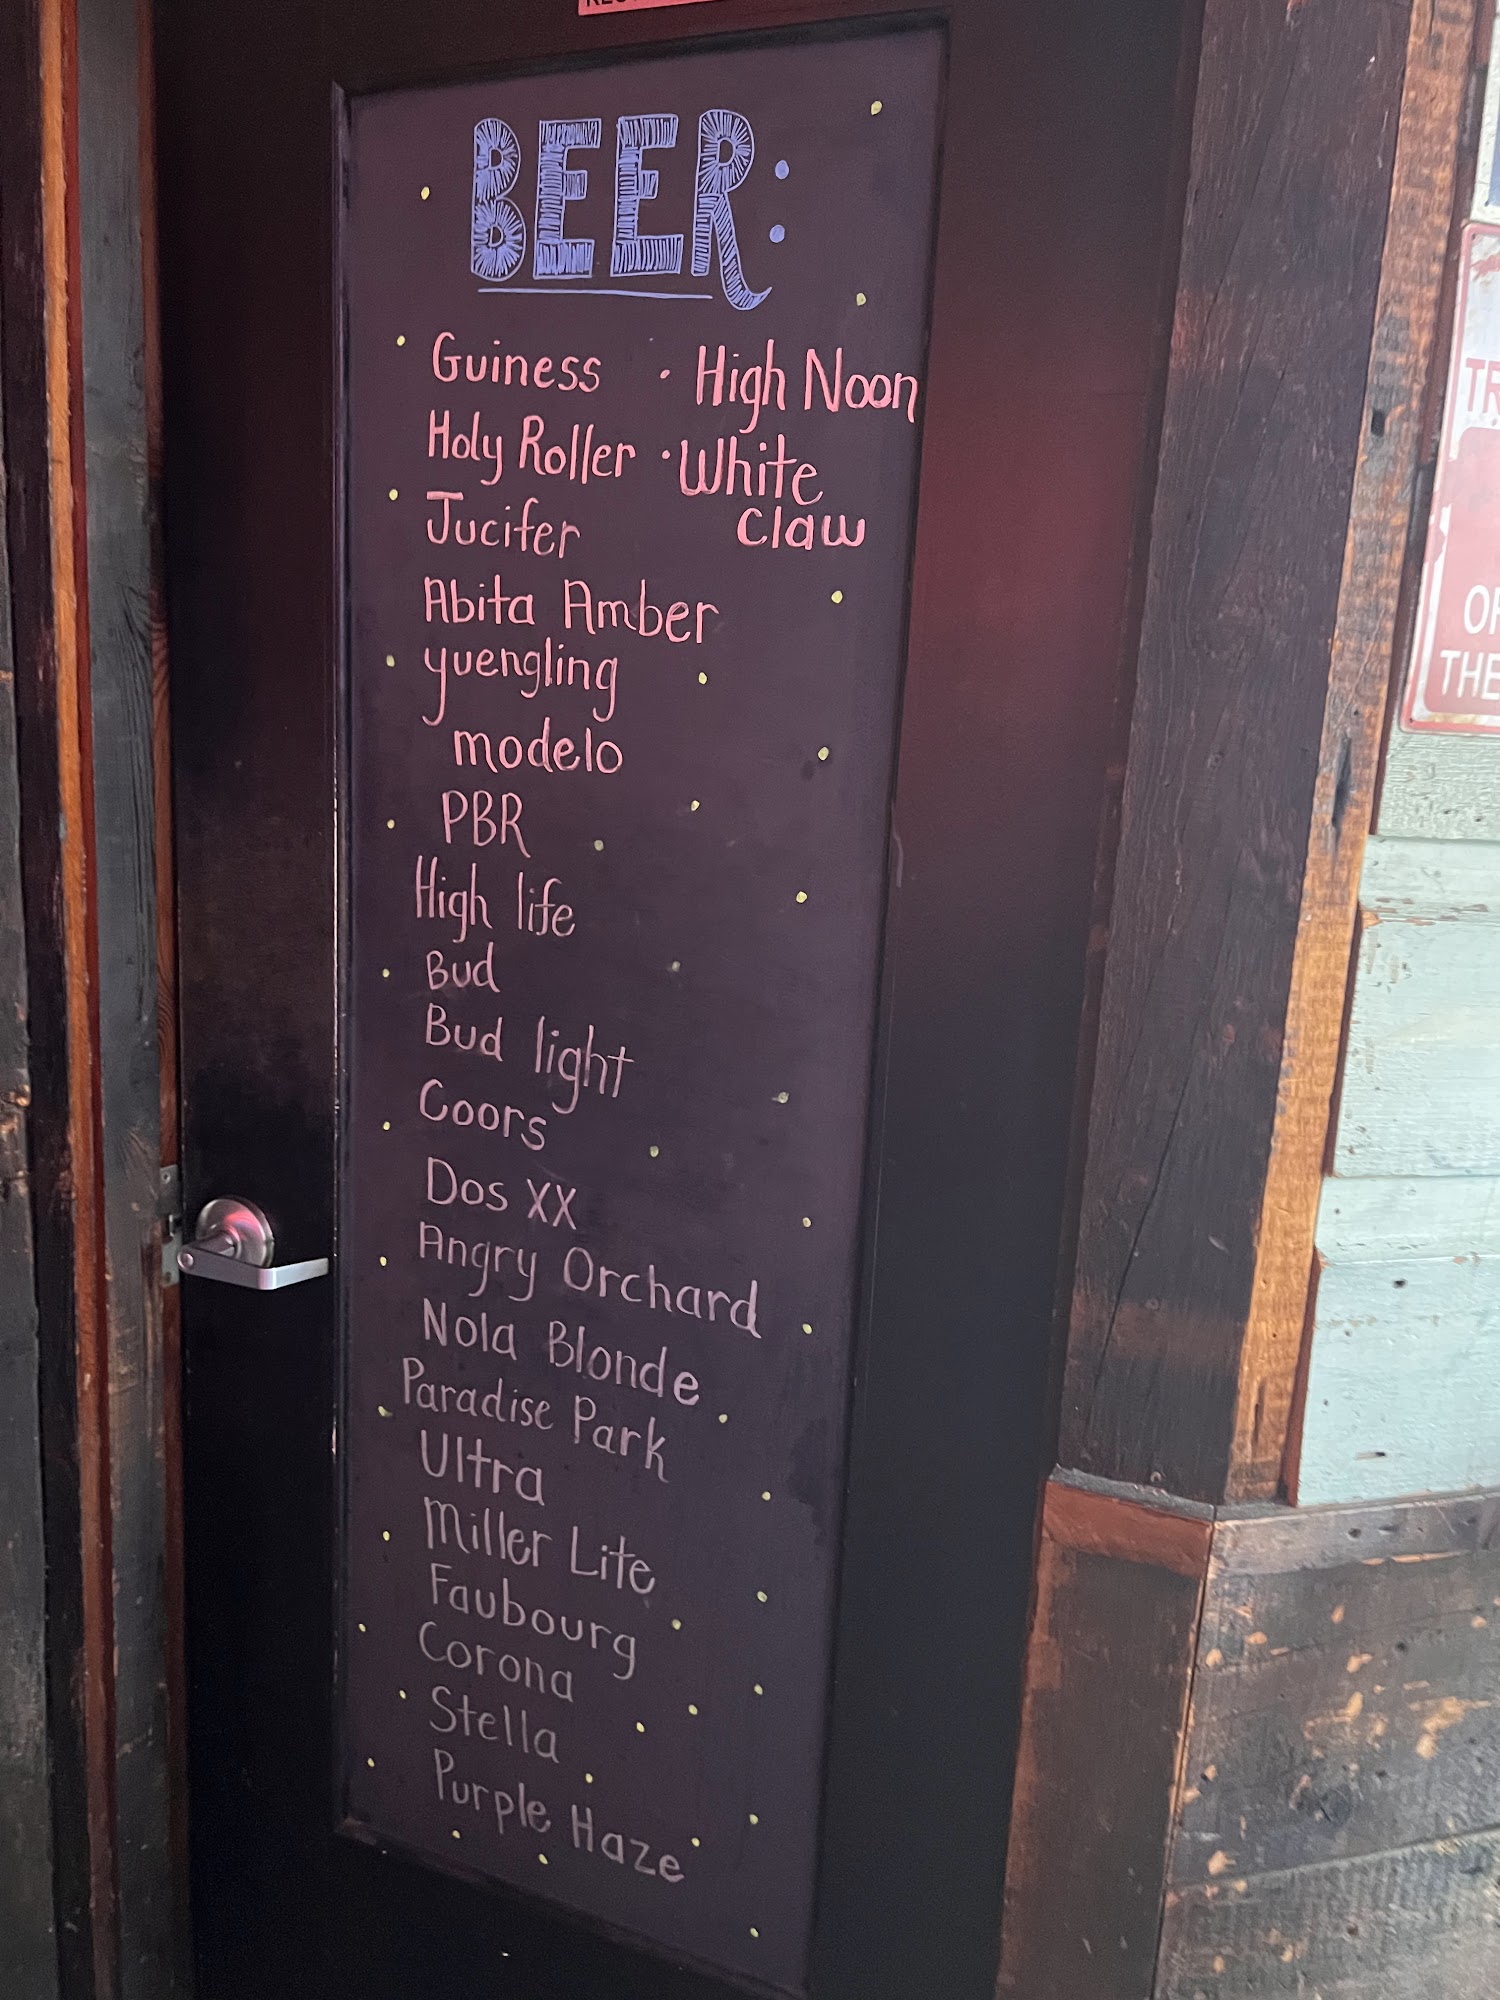 BEER:
Guiness
Holy Roller
Jucifer
Abita Amber
yuengling
modelo
PBR
High life
Bud
Bud light
Coors
Dos XX
Angry Orchard
Nola Blonde
Paradise Park
Ultra
Miller Lite
Faubourg
Corona
Stella
Purple Haze
· High Noon
· White
Claw
TR
OF
THE